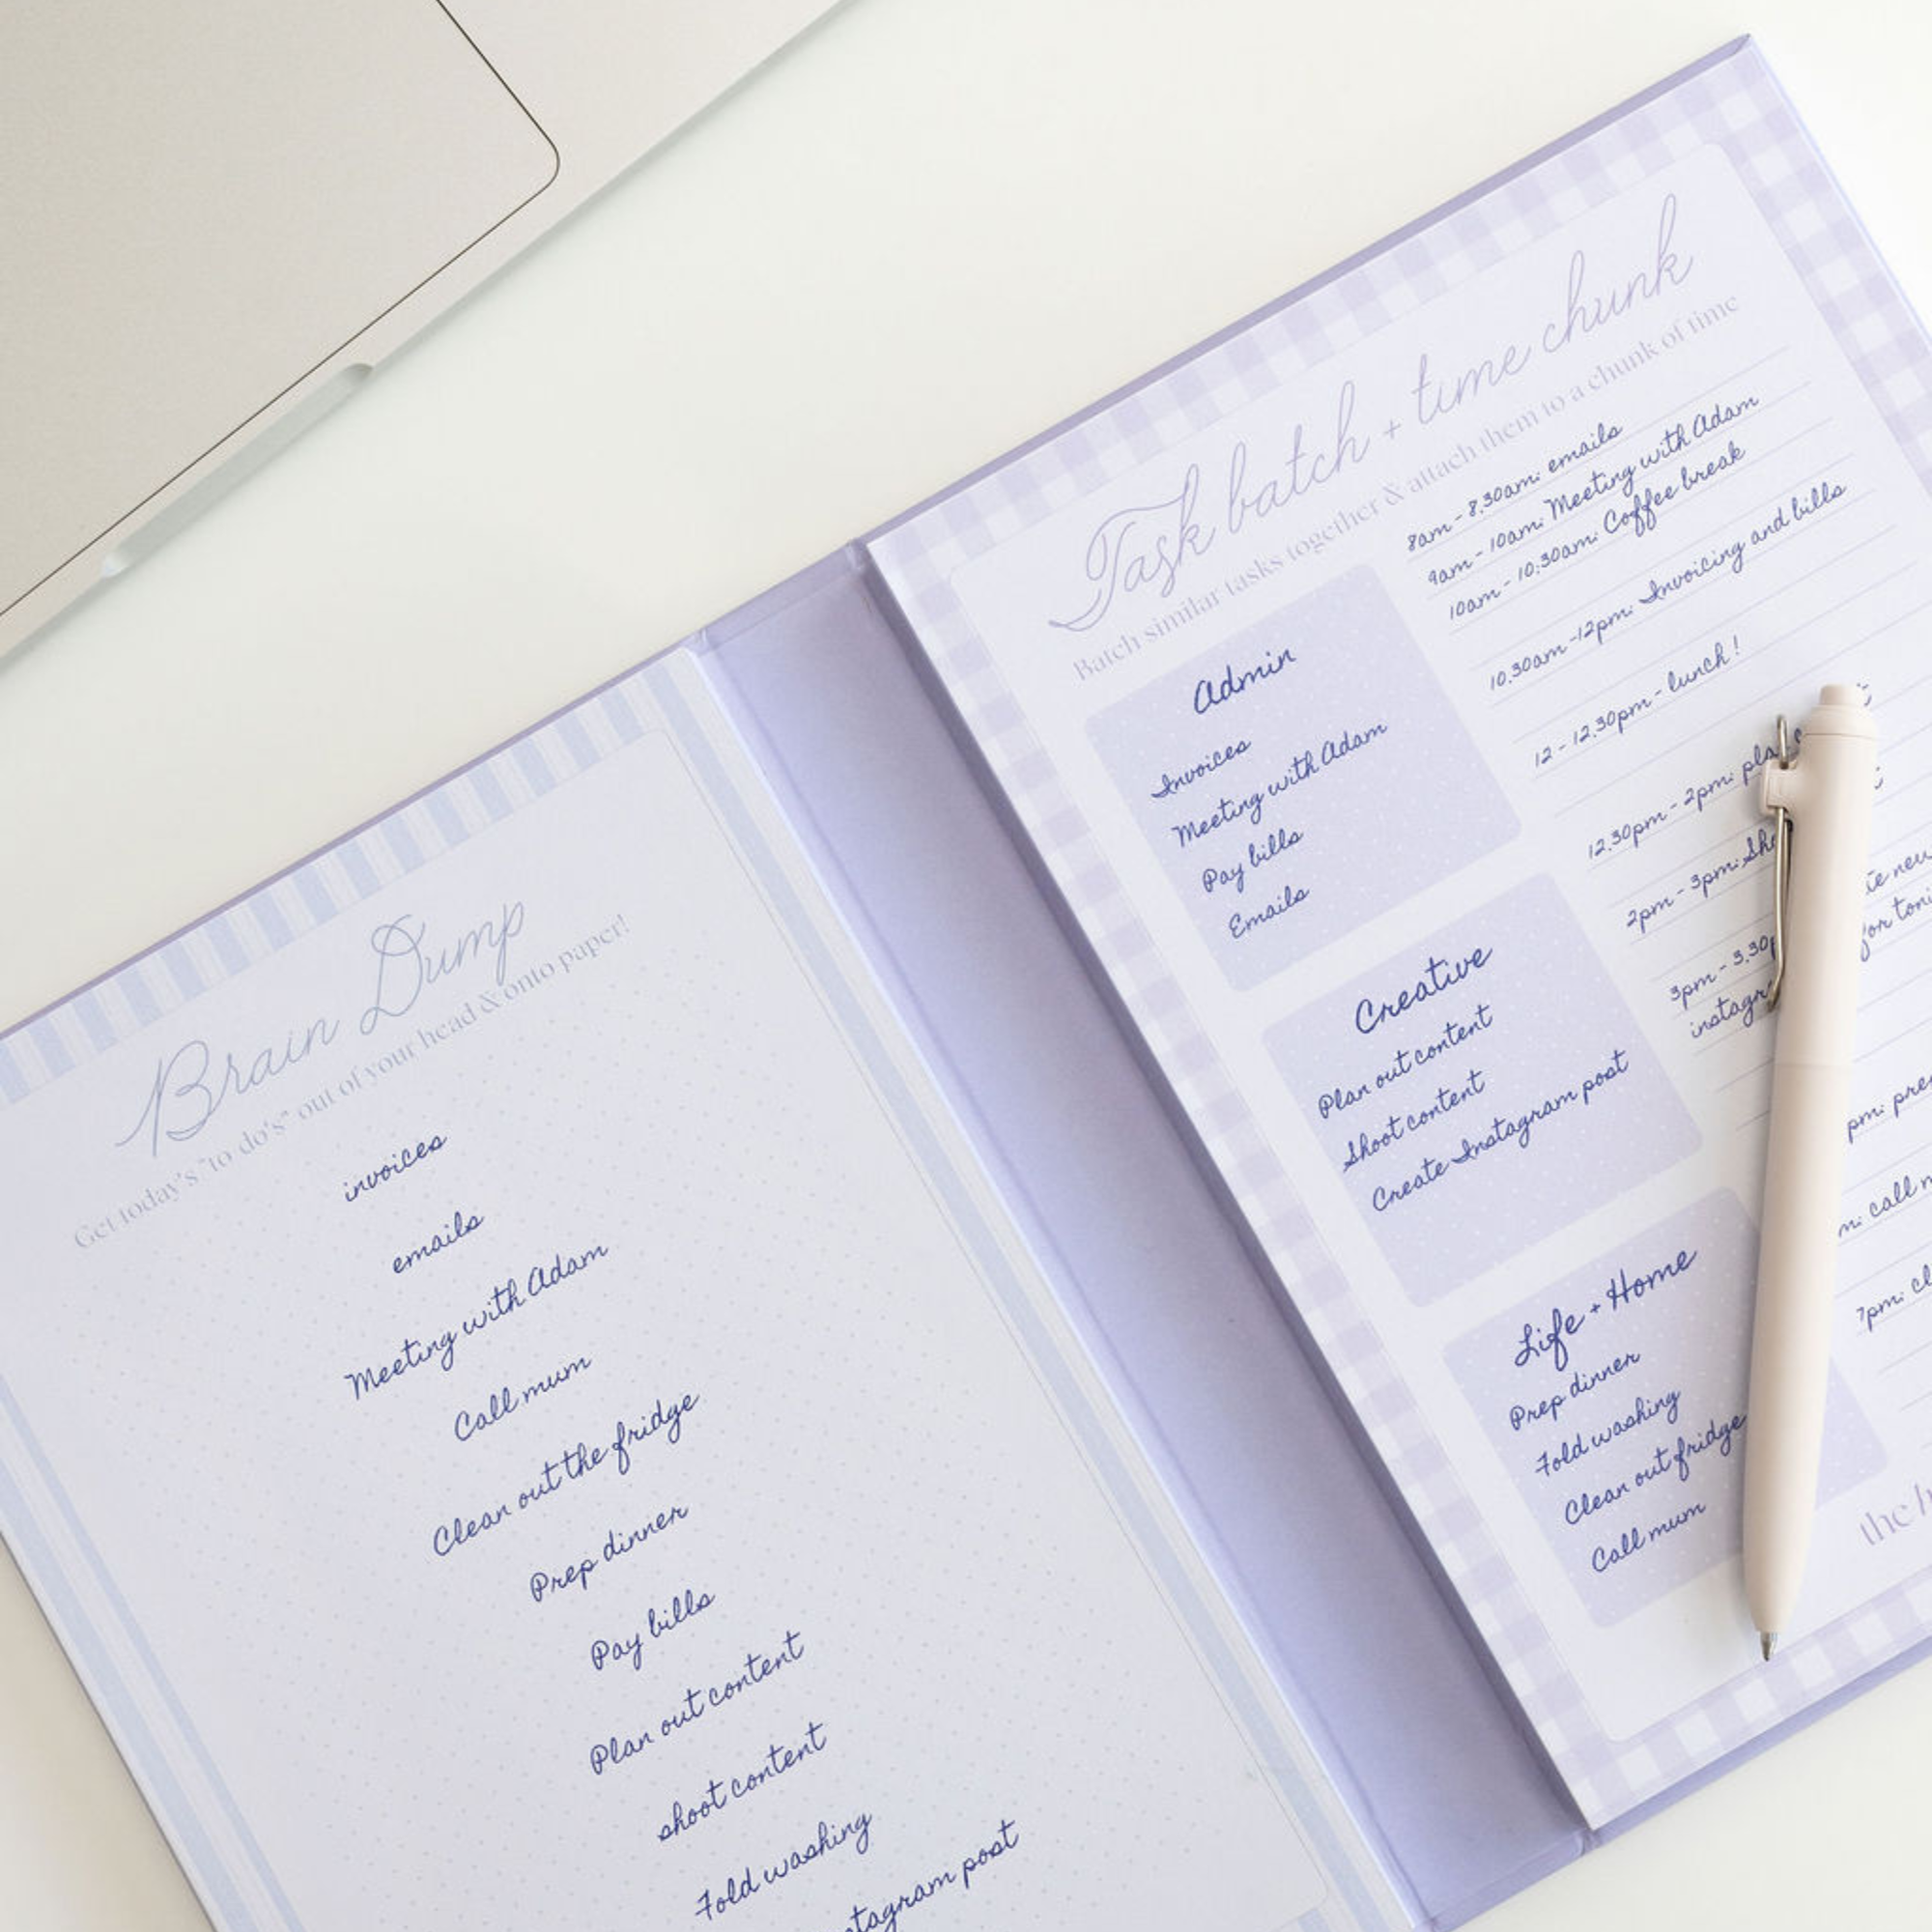 Brain Dump
Get today's "to do's" out of your head & onto paper!
invoices
emails
Meeting with Adam
Call mum
Clean out the fridge
Prep dinner
Pay bills
Plan out content
shoot content
Fold washing
post
Task batch + time chunk
Batch similar tasks together & attach them to a chunk of time
Admin
Invoices
Meeting with Adam
Pay bills
Emails
Creative
Plan out content
Shoot content
Create Instagram post
Life + Home
Prep dinner
Fold washing
Clean out fridge
Call mum
8am - 8.30am: emails
9am - 10am: Meeting with Adam
10am - 10:30am: Coffee break
10.30am -12pm: Invoicing and bills
12 - 12.30pm - lunch!
12.30pm - 2pm:
2pm - 3pm:
3pm -
new
for
pm:
call
7pm:
the